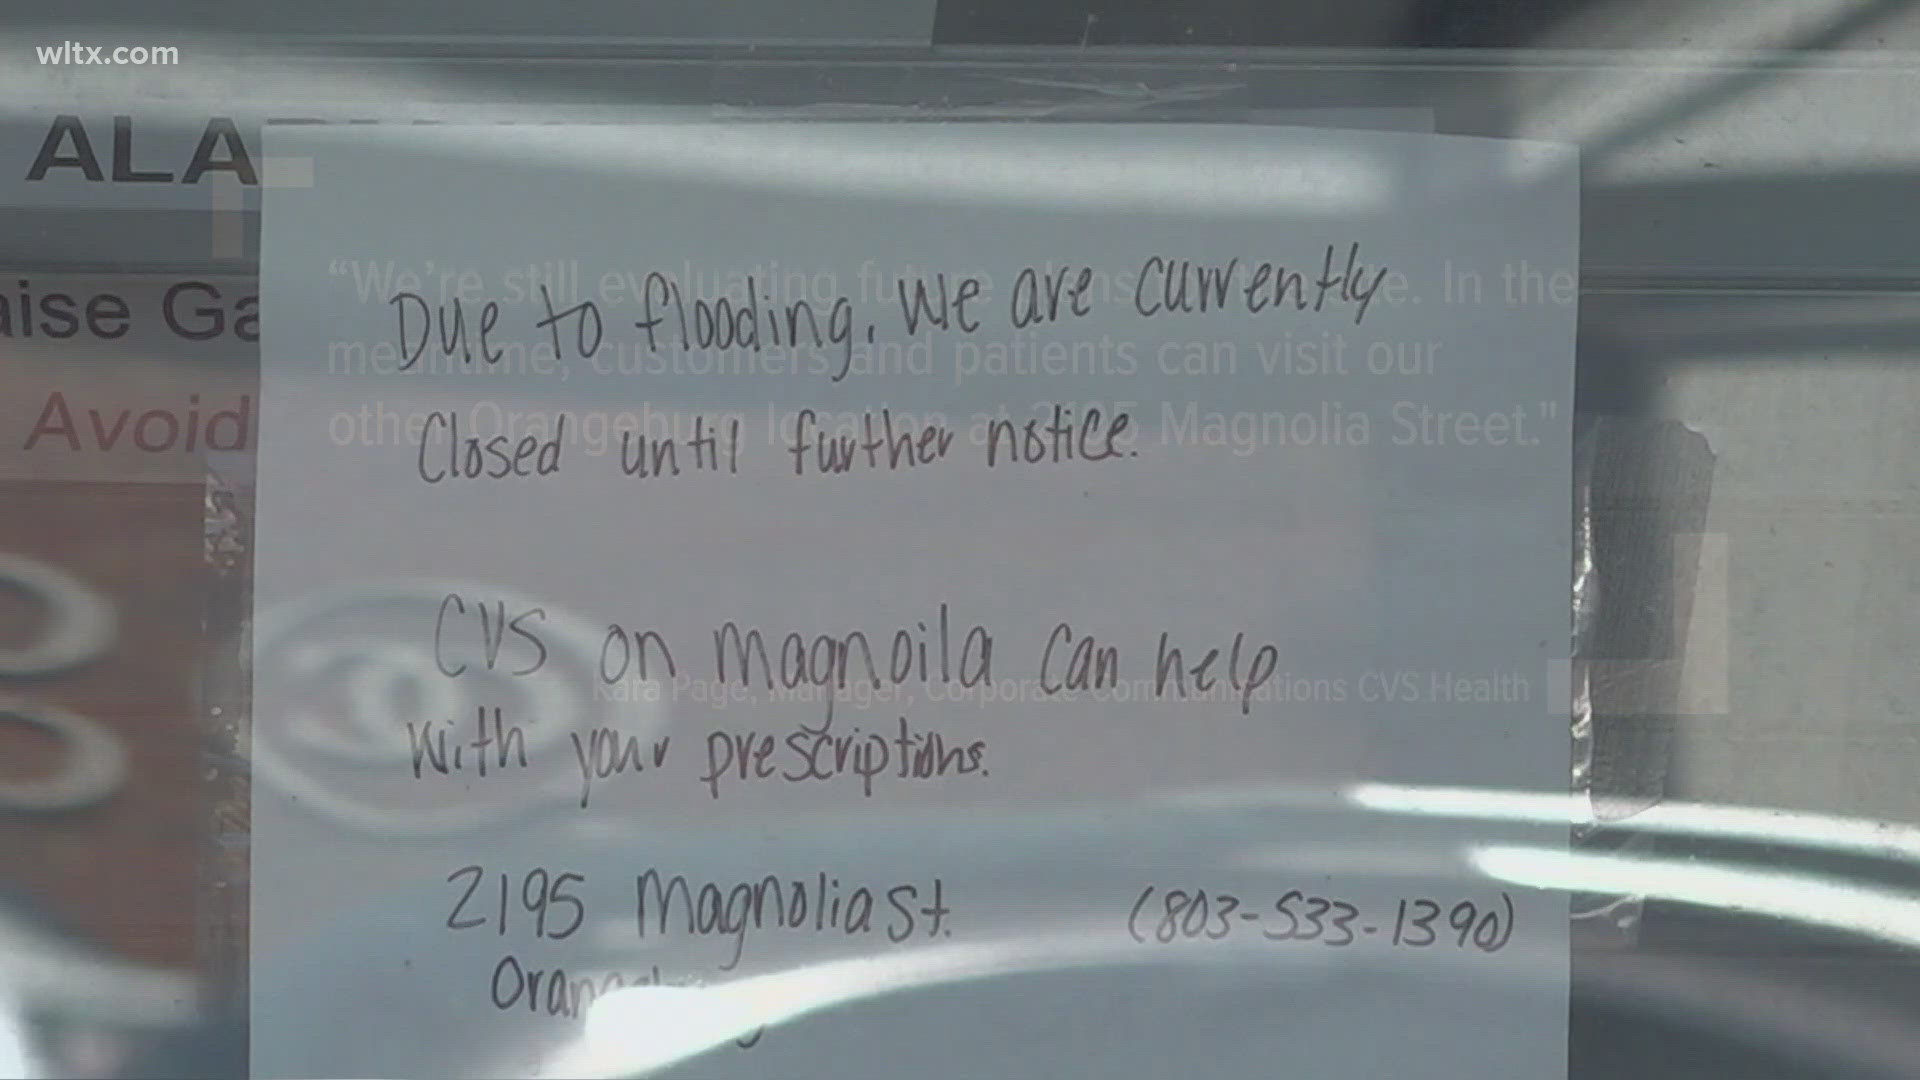 wltx.com
ALA
aise Ga
Avoid
Due to flooding, we are currently
Closed until further notice.
CVS on magnoila can help
with your prescriptions.
2195 Magnolia St. (803-533-1390)
"We're still evaluating In the
customers and patients can visit our
other Orangeburg location at 2195 Magnolia Street."
Kara Page, Manager, Corporate Communications CVS Health